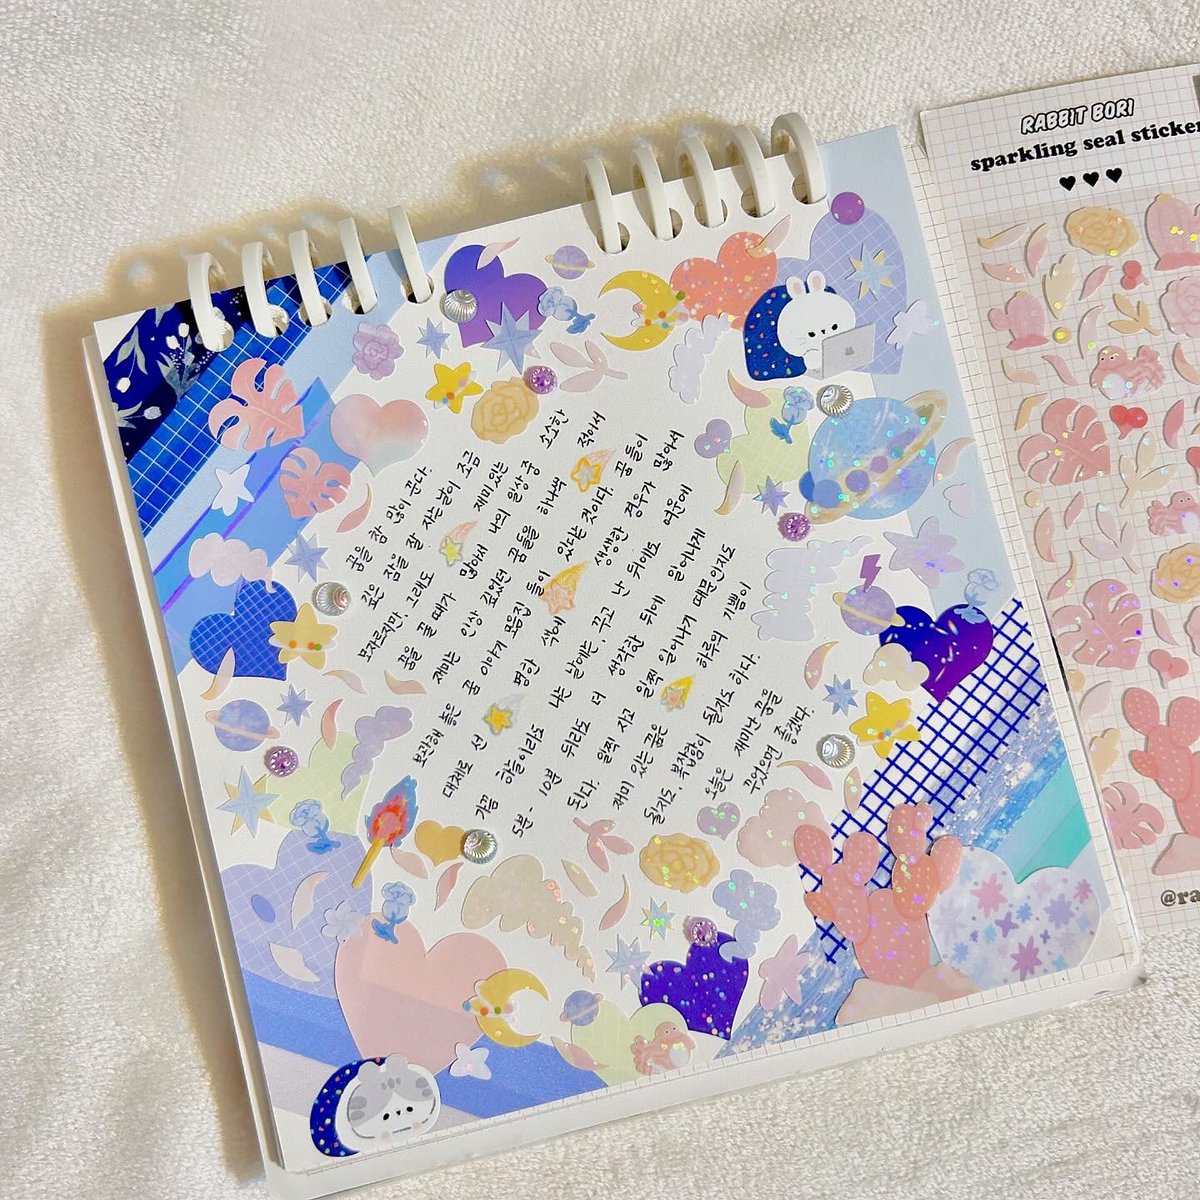 꿈을 참 많이 꾼다.
깊은 잠을 잘 자는날이 조금
모자르지만, 그래도 재미있는
꿈을 꿀 때가 많아서 나의 일상 중 소소한
재미는 인상 깊었던 꿈들을 하나씩 적어서
보관해 놓은 꿈 이야기 모음집 들이 있다는 것이다. 꿈들이
대체로 선명한 색에 생생한 경우가 많아서
가끔 하늘이라도 나는 날에는, 꾸고 난 뒤에도 여운에
5분- 10분 뒤라도 더 생각한 뒤에 일어나게
된다. 일찍 자고 일찍 일어나기 때문인지도
재미 있는 꿈은 하루의 기쁨이
될지도, 복잡함이 될지도 하다.
오늘은 재미난 꿈을
꾸었으면 좋겠다.
RABBIT BORI
sparkling seal sticker
@ra